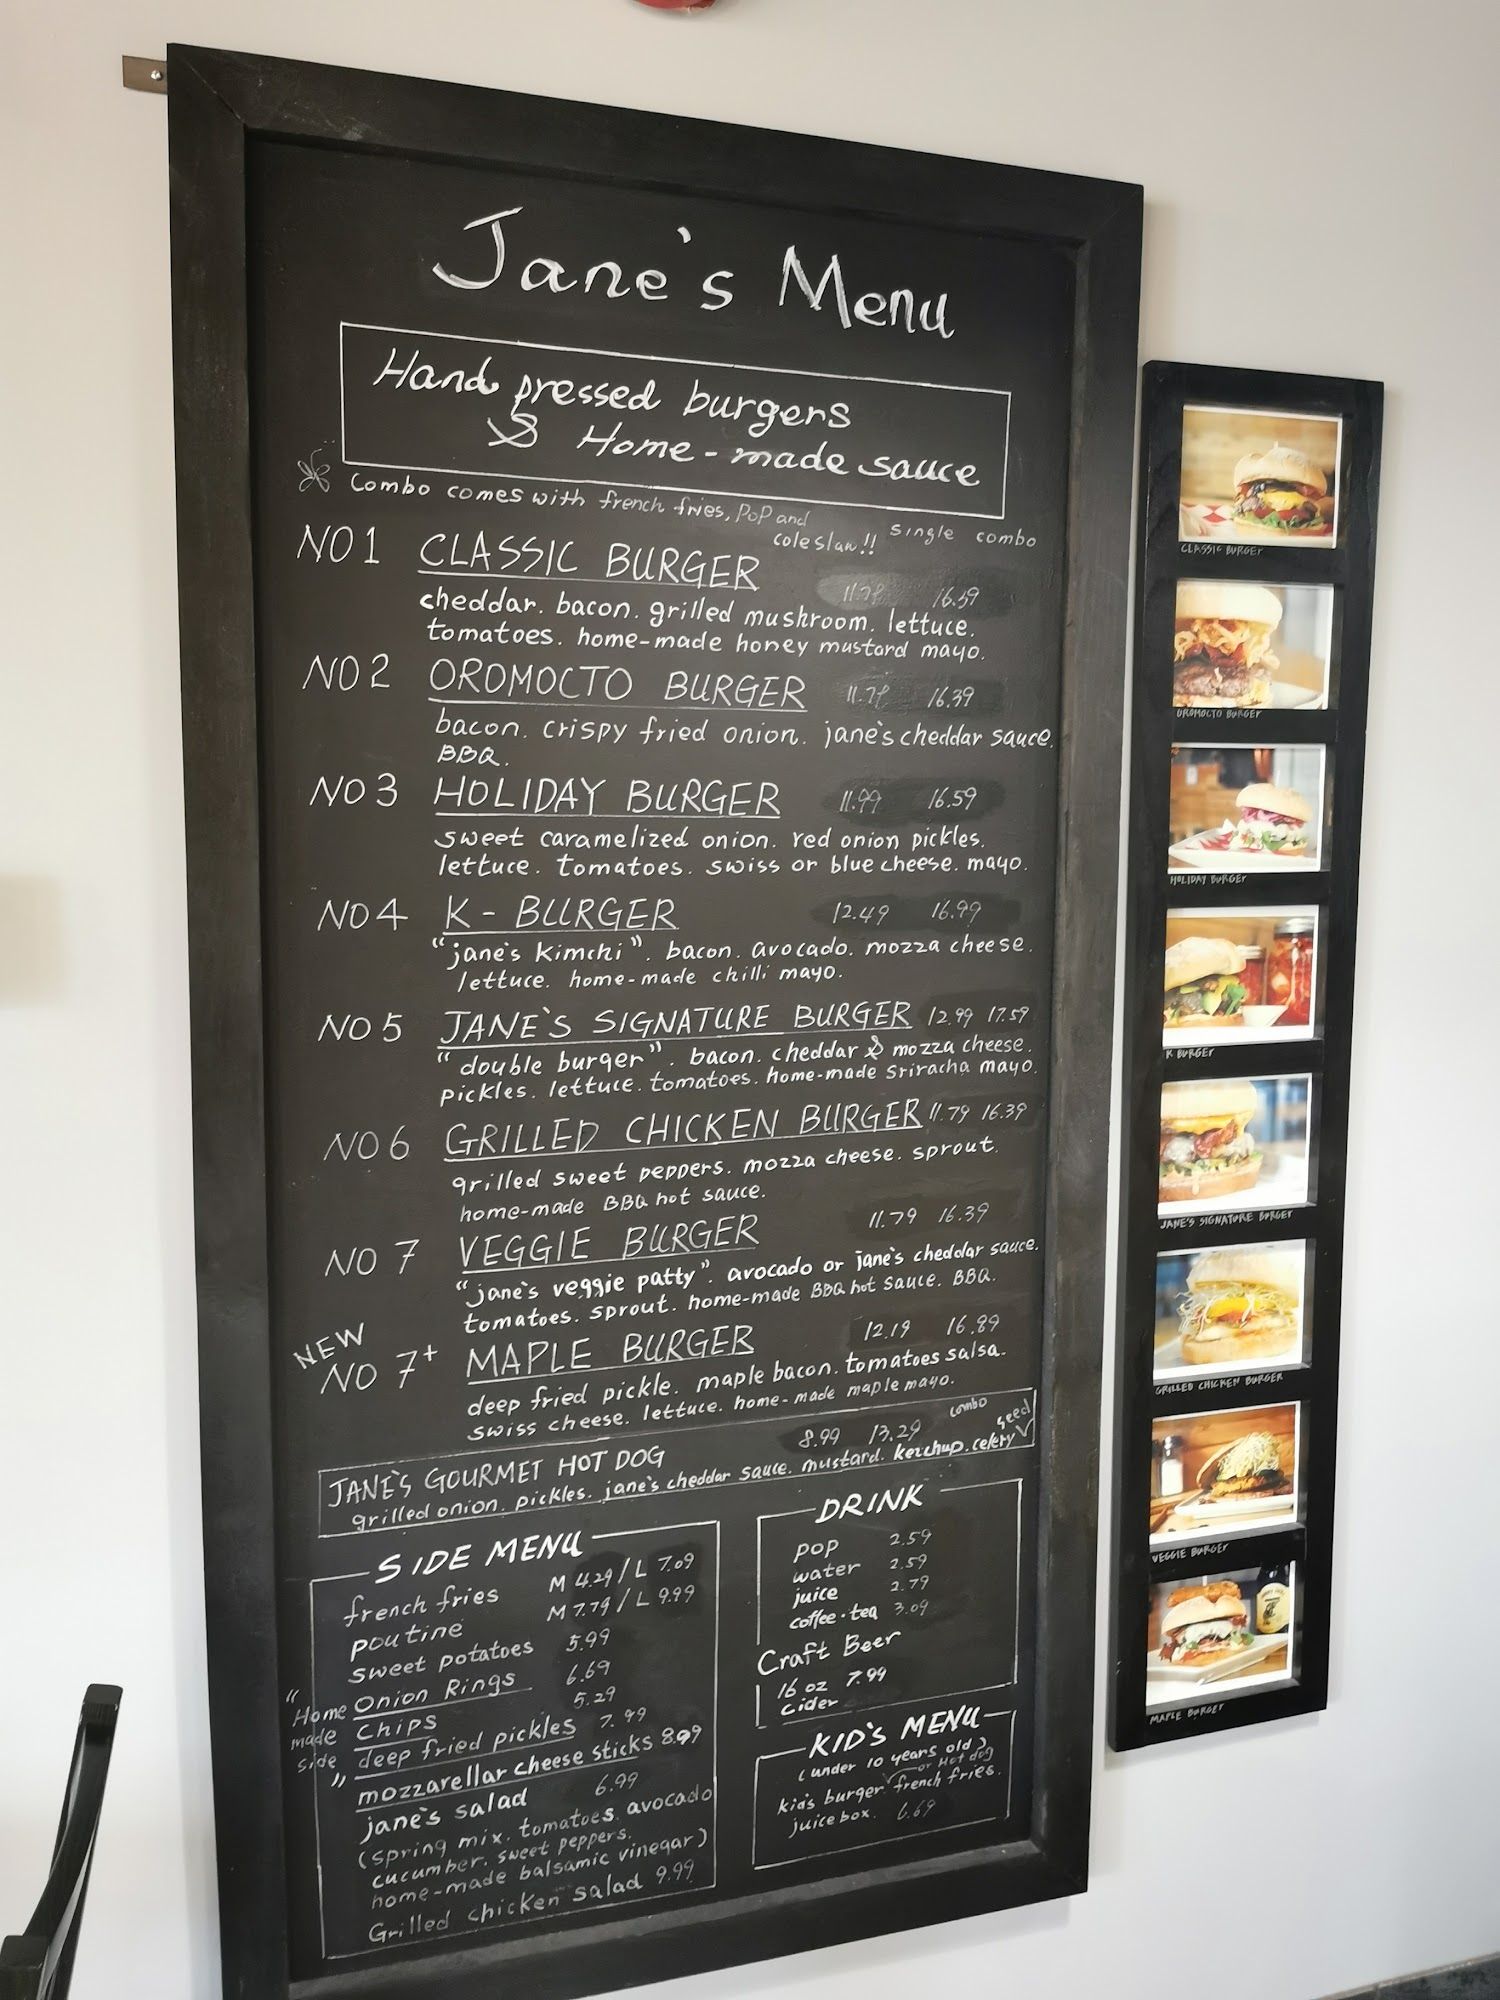 Jane's Menu
Hand pressed burgers
& Home-made sauce
Combo comes with french fries, pop and
coleslaw!! single combo
NO 1 CLASSIC BURGER 16.59
cheddar. bacon. grilled mushroom. lettuce.
tomatoes. home-made honey mustard mayo.
NO 2 OROMOCTO BURGER 16.39
bacon. crispy fried onion. jane's cheddar sauce.
BBQ.
NO 3 HOLIDAY BURGER 11.99 16.59
sweet caramelized onion. red onion pickles.
lettuce. tomatoes. swiss or blue cheese. mayo.
NO 4 K-BURGER 12.49 16.99
"jane's kimchi". bacon. avocado. mozza cheese.
lettuce. home-made chilli mayo.
NO 5 JANE'S SIGNATURE BURGER 12.99 17.59
"double burger". bacon. cheddar & mozza cheese.
pickles. lettuce. tomatoes. home-made sriracha mayo.
NO 6 GRILLED CHICKEN BURGER 11.79 16.39
grilled sweet peppers. mozza cheese. sprout.
home-made BBQ hot sauce.
NO 7 VEGGIE BURGER 11.79 16.39
"jane's veggie patty". avocado or jane's cheddar sauce.
tomatoes. sprout. home-made BBQ hot sauce. BBQ.
NEW
NO 7+ MAPLE BURGER 12.19 16.89
deep fried pickle. maple bacon. tomatoes salsa.
swiss cheese. lettuce. home-made maple mayo.
JANE'S GOURMET HOT DOG 8.99 13.29 combo
grilled onion. pickles. jane's cheddar sauce. mustard. ketchup. celery seed
SIDE MENU
french fries M 4.29 / L 7.09
poutine M 7.79 / L 9.99
sweet potatoes 5.99
Onion Rings 6.69
Chips 5.29
deep fried pickles 7.99
mozzarellar cheese sticks 8.99
"Home
made
side"
jane's salad 6.99
(spring mix. tomatoes. avocado
cucumber. sweet peppers.
home-made balsamic vinegar)
Grilled chicken salad 9.99
DRINK
pop 2.59
water 2.59
juice 2.79
coffee·tea 3.09
Craft Beer
16 oz 7.99
cider
KID'S MENU
(under 10 years old)
or Hot dog
kid's burger french fries.
juice box. 6.69
CLASSIC BURGER
OROMOCTO BURGER
HOLIDAY BURGER
K BURGER
JANE'S SIGNATURE BURGER
GRILLED CHICKEN BURGER
VEGGIE BURGER
MAPLE BURGER